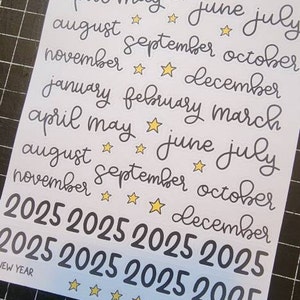 april may june july
august september october
november december
january february march
april may june july
august september october
november december
2025 2025 2025 2025
2025 2025 2025 2025
NEW YEAR